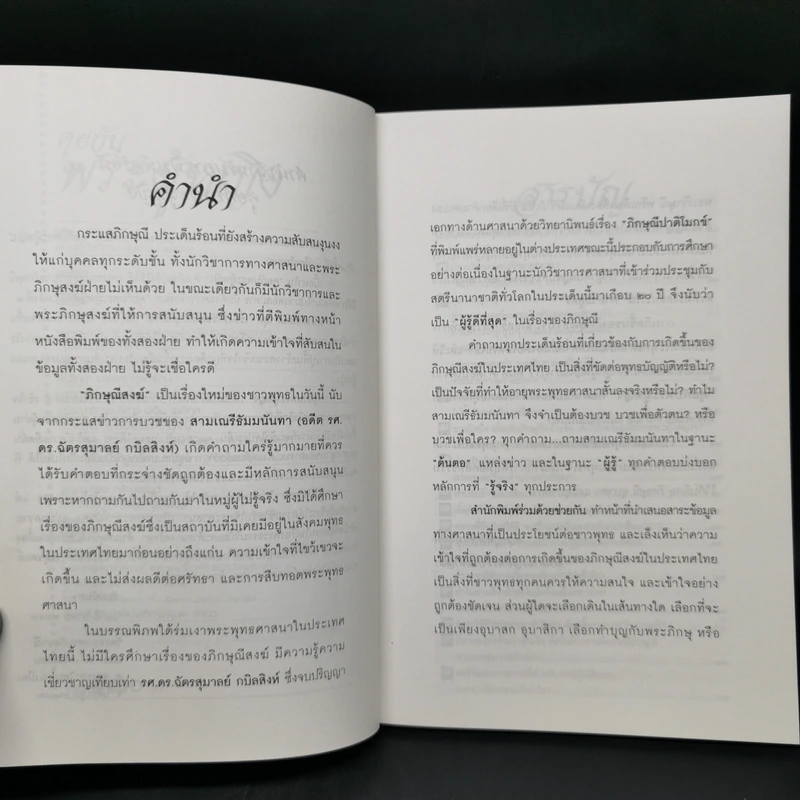 คำนำ
กระแสภิกษุณี ประเด็นร้อนที่ยังสร้างความสับสนงุนงง
ให้แก่บุคคลทุกระดับชั้น ทั้งนักวิชาการทางศาสนาและพระ
ภิกษุสงฆ์ฝ่ายไม่เห็นด้วย ในขณะเดียวกันก็มีนักวิชาการและ
พระภิกษุสงฆ์ที่ให้การสนับสนุน ซึ่งข่าวที่ตีพิมพ์ทางหน้า
หนังสือพิมพ์ของทั้งสองฝ่าย ทำให้เกิดความเข้าใจที่สับสนใน
ข้อมูลทั้งสองฝ่าย ไม่รู้จะเชื่อใครดี
"ภิกษุณีสงฆ์" เป็นเรื่องใหม่ของชาวพุทธในวันนี้ นับ
จากกระแสข่าวการบวชของ สามเณรีธัมมนันทา (อดีต รศ.
ดร.ฉัตรสุมาลย์ กบิลสิงห์) เกิดคำถามใคร่รู้มากมายที่ควร
ได้รับคำตอบที่กระจ่างชัดถูกต้องและมีหลักการสนับสนุน
เพราะหากถามกันไปถามกันมาในหมู่ผู้ไม่รู้จริง ซึ่งมิได้ศึกษา
เรื่องของภิกษุณีสงฆ์ซึ่งเป็นสถาบันที่มิเคยมีอยู่ในสังคมพุทธ
ในประเทศไทยมาก่อนอย่างถึงแก่น ความเข้าใจที่ไขว้เขวจะ
เกิดขึ้น และไม่ส่งผลดีต่อศรัทธา และการสืบทอดพระพุทธ
ศาสนา
ในบรรณพิภพใต้ร่มเงาพระพุทธศาสนาในประเทศ
ไทยนี้ ไม่มีใครศึกษาเรื่องของภิกษุณีสงฆ์ มีความรู้ความ
เชี่ยวชาญเทียบเท่า รศ.ดร.ฉัตรสุมาลย์ กบิลสิงห์ ซึ่งจบปริญญา
เอกทางด้านศาสนาด้วยวิทยานิพนธ์เรื่อง "ภิกษุณีปาติโมกข์"
ที่พิมพ์แพร่หลายอยู่ในต่างประเทศขณะนี้ประกอบกับการศึกษา
อย่างต่อเนื่องในฐานะนักวิชาการศาสนาที่เข้าร่วมประชุมกับ
สตรีนานาชาติทั่วโลกในประเด็นนี้มาเกือบ ๒๐ ปี จึงนับว่า
เป็น "ผู้รู้ดีที่สุด" ในเรื่องของภิกษุณี
คำถามทุกประเด็นร้อนที่เกี่ยวข้องกับการเกิดขึ้นของ
ภิกษุณีสงฆ์ในประเทศไทย เป็นสิ่งที่ขัดต่อพุทธบัญญัติหรือไม่?
เป็นปัจจัยที่ทำให้อายุพระพุทธศาสนาสั้นลงจริงหรือไม่? ทำไม
สามเณรีธัมมนันทา จึงจำเป็นต้องบวช บวชเพื่อตัวตน? หรือ
บวชเพื่อใคร? ทุกคำถาม...ถามสามเณรีธัมมนันทาในฐานะ
"ต้นตอ" แหล่งข่าว และในฐานะ "ผู้รู้" ทุกคำตอบบ่งบอก
หลักการที่ "รู้จริง" ทุกประการ
สำนักพิมพ์ร่วมด้วยช่วยกัน ทำหน้าที่นำเสนอสาระข้อมูล
ทางศาสนาที่เป็นประโยชน์ต่อชาวพุทธ และเล็งเห็นว่าความ
เข้าใจที่ถูกต้องต่อการเกิดขึ้นของภิกษุณีสงฆ์ในประเทศไทย
เป็นสิ่งที่ชาวพุทธทุกคนควรให้ความสนใจ และเข้าใจอย่าง
ถูกต้องชัดเจน ส่วนผู้ใดจะเลือกเดินในเส้นทางใด เลือกที่จะ
เป็นเพียงอุบาสก อุบาสิกา เลือกทำบุญกับพระภิกษุ หรือ